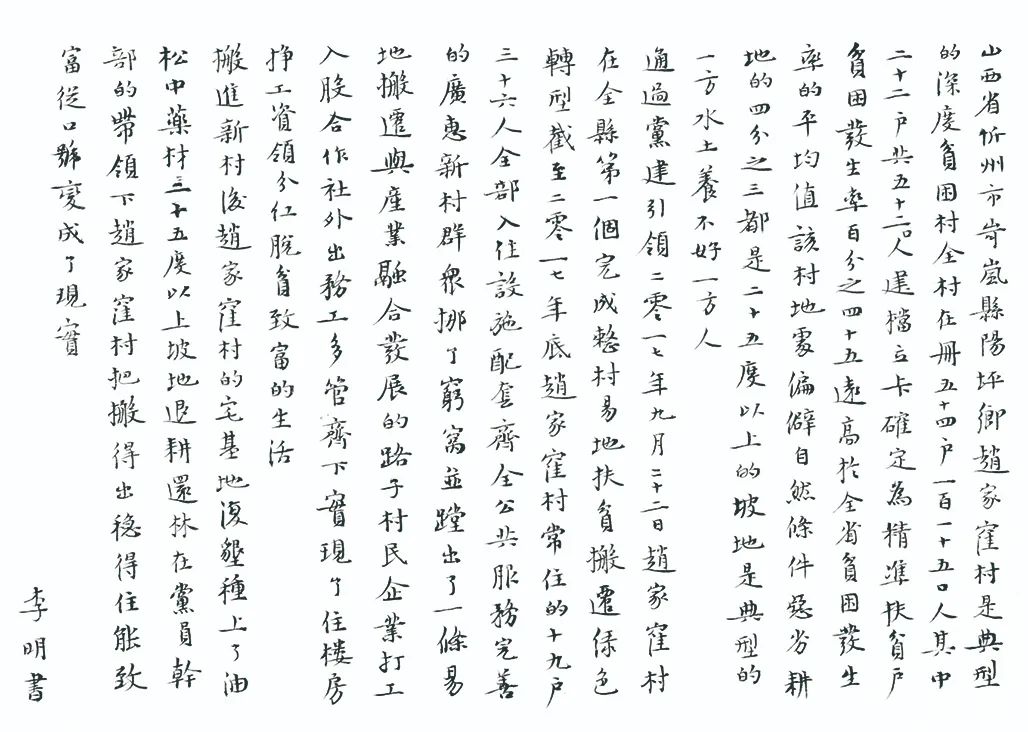 山西省忻州市岢嵐縣陽坪鄉趙家窪村是典型
的深度貧困村全村在冊五十四户一百一十五口人其中
二十二户共五十二口人建檔立卡確定為精準扶貧户
貧困發生率百分之四十五遠高於全省貧困發生
率的平均值該村地處偏僻自然條件惡劣耕
地的四分之三都是二十五度以上的坡地是典型的
一方水土養不好一方人
通過黨建引領二零一七年九月二十二日趙家窪村
在全縣第一個完成整村易地扶貧搬遷绿色
轉型截至二零一七年底趙家窪村常住的十九户
三十六人全部入住設施配套齊全公共服務完善
的廣惠新村群眾挪了窮窩並蹚出了一條易
地搬遷與產業融合發展的路子村民企業打工
入股合作社外出務工多管齊下實現了住楼房
掙工資領分红脫貧致富的生活
搬進新村後趙家窪村的宅基地復墾種上了油
松中藥材三十五度以上坡地退耕還林在黨員幹
部的帶領下趙家窪村把搬得出稳得住能致
富從口號變成了現實
李明書